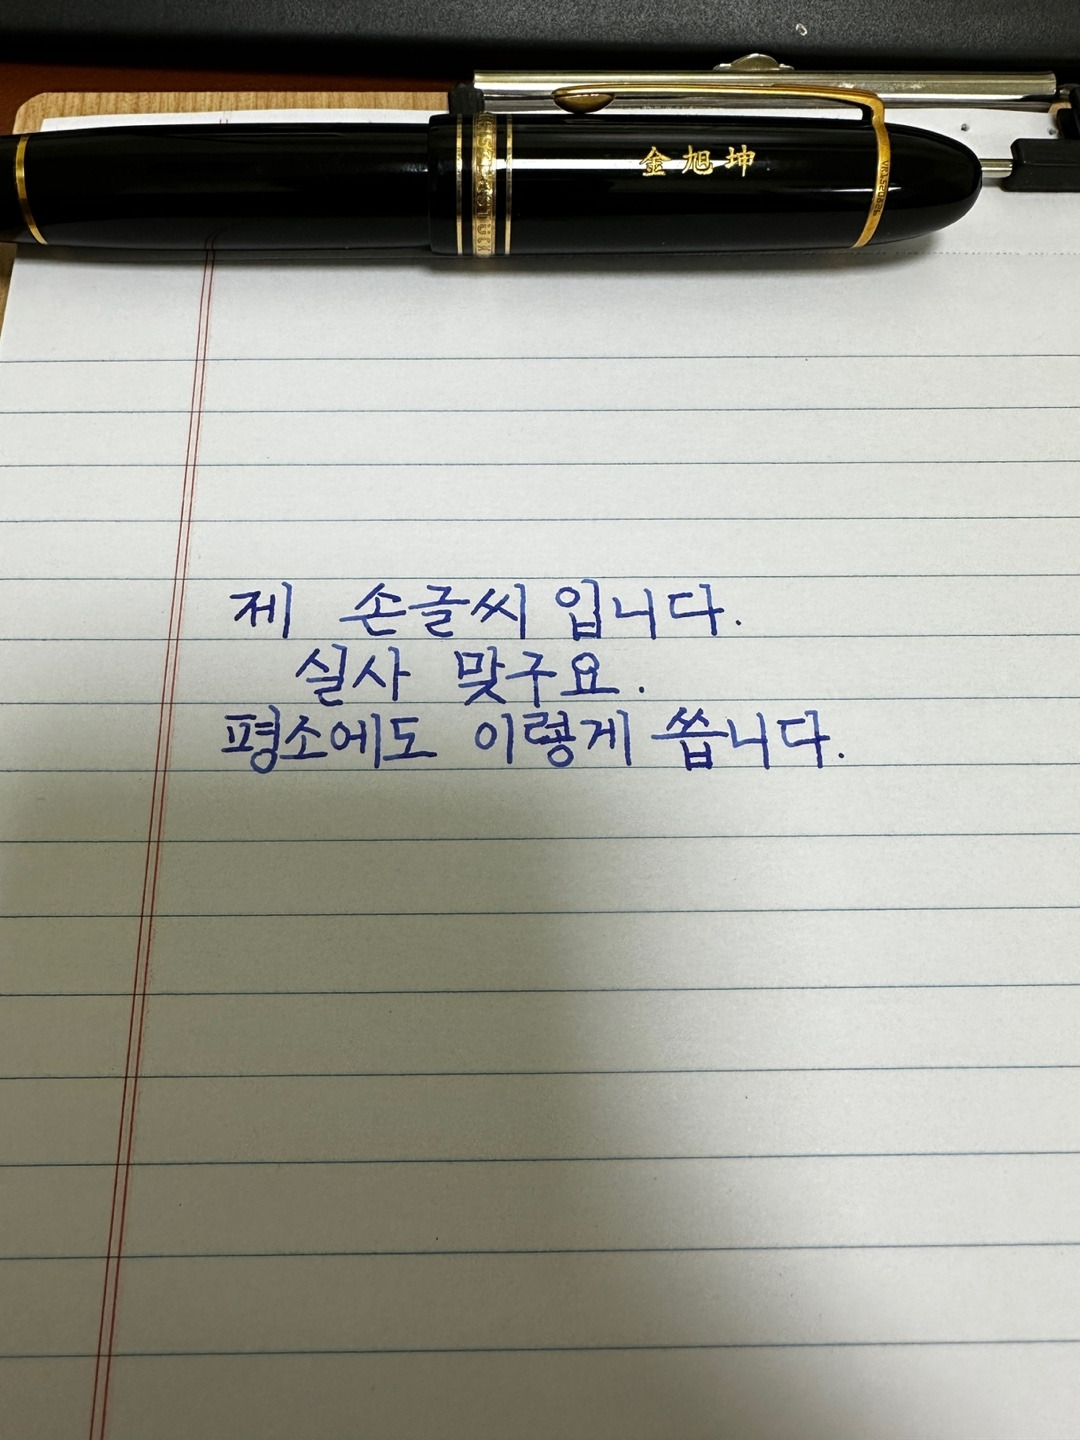 金旭坤
제 손글씨 입니다.
실사 맞구요.
평소에도 이렇게 씁니다.